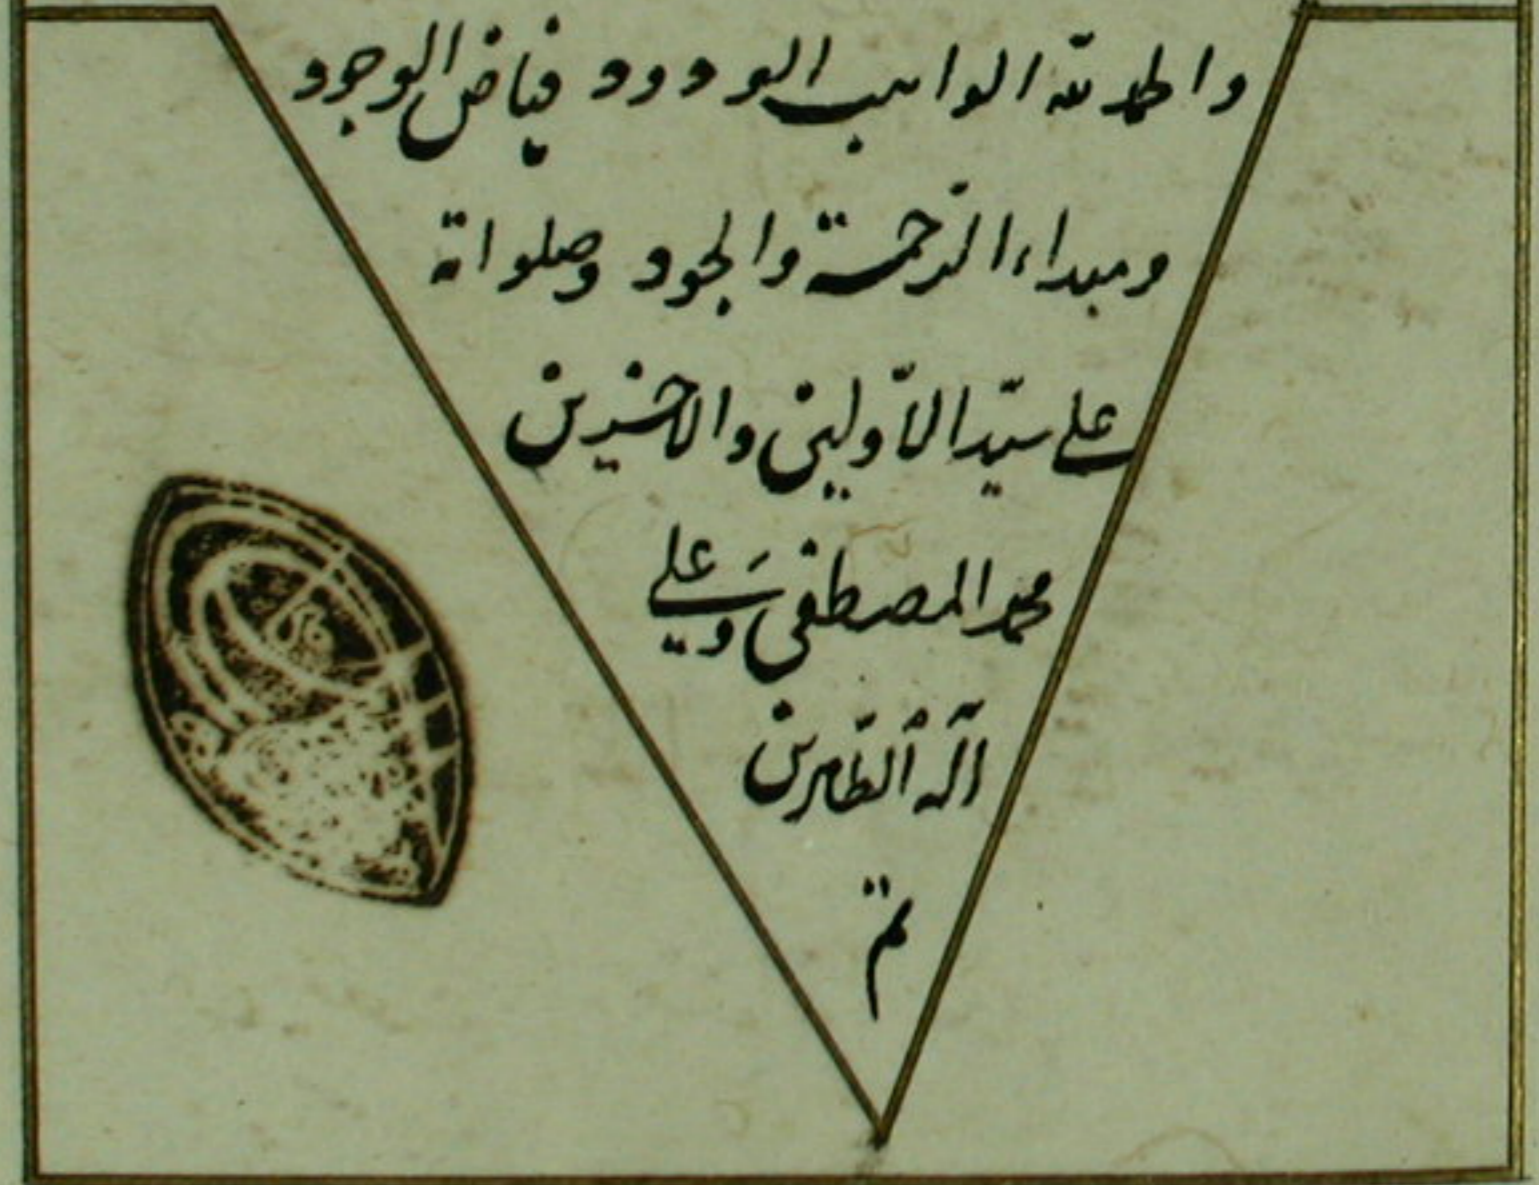 والحمد لله الواهب الودود فياض الوجود
ومبداء الرّحمة والجود وصلواته
علي سيّد الأوّلين والاخرين
محمد المصطفى وَعلي
آله ألطّاهرين
تم